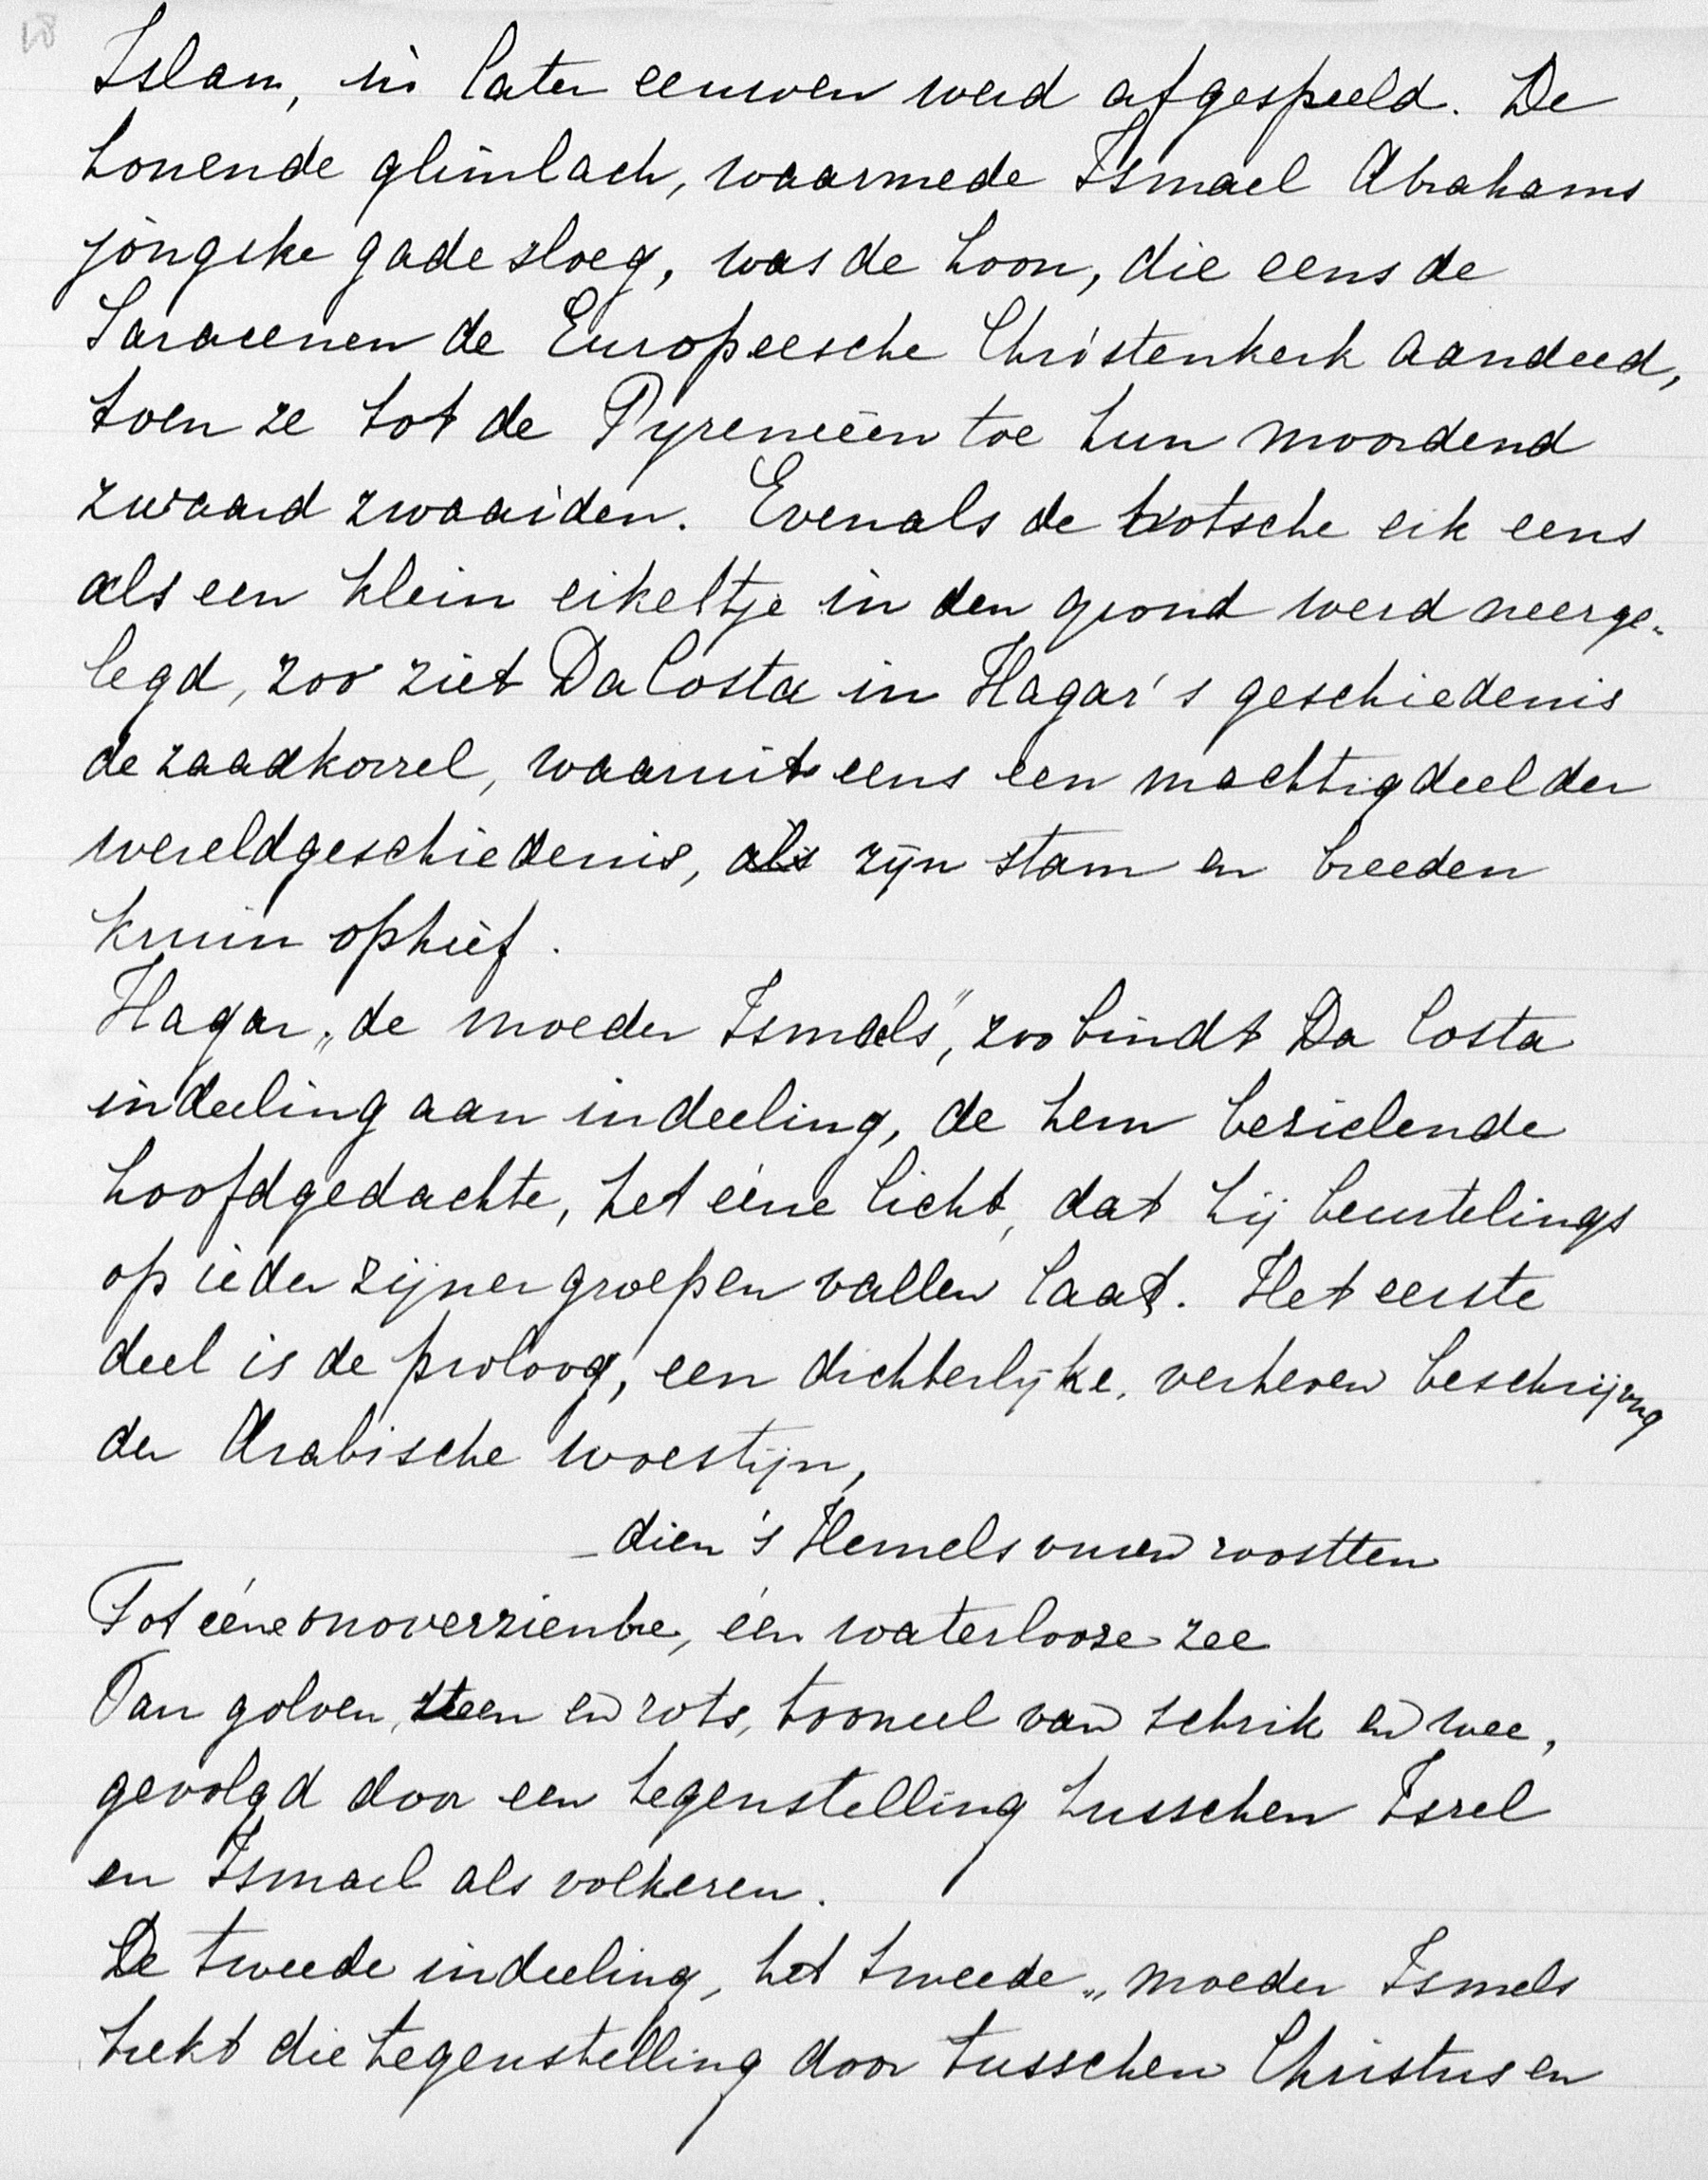 18
Islam, in later eeuwen werd afgespeeld. De
honende glimlach, waarmede Ismael Abrahams
jongske gade sloeg, was de hoon, die eens de
Saracenen de Europeesche Christenkerk aandeed,
toen ze tot de Pyreneeën toe hun moordend
zwaard zwaaiden. Evenals de trotsche eik eens
als een klein eikeltje in den grond werd neerge-
legd, zoo ziet Da Costa in Hagar's geschiedenis
de zaadkorrel, waaruit eens een machtig deel der
wereldgeschiedenis, als zijn stam en breeden
kruin ophief.
Hagar „de moeder Ismaels", zoo bindt Da Costa
indeeling aan indeeling, de hem bezielende
hoofdgedachte, het ééne licht, dat hij beurtelings
op ieder zijner groepen vallen laat. Het eerste
deel is de proloog, een dichterlijke, verheven beschrijving
der Arabische woestijn,
_ dien 's Hemels vuren roostten
Tot ééne onoverzienbre, één waterlooze zee
Van golven, steen en rots, tooneel van schrik en wee,
gevolgd door een tegenstelling tusschen Isrel
en Ismael als volkeren.
De tweede indeeling, het tweede „moeder Ismels
trekt die tegenstelling door tusschen Christus en